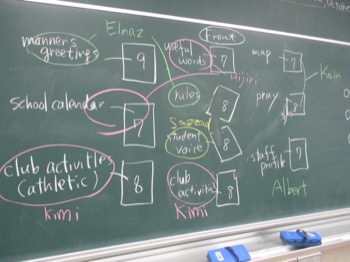 Elnaz
manners
greetings
9
school calendar
7
club activities
(athletic)
8
Kimi
Front
useful
words
7
Hijiri
rules
8
Sazead
student
voice
8
club
activities
8
Kimi
map
7
Kain
pray
8
staff
profile
7
Albert